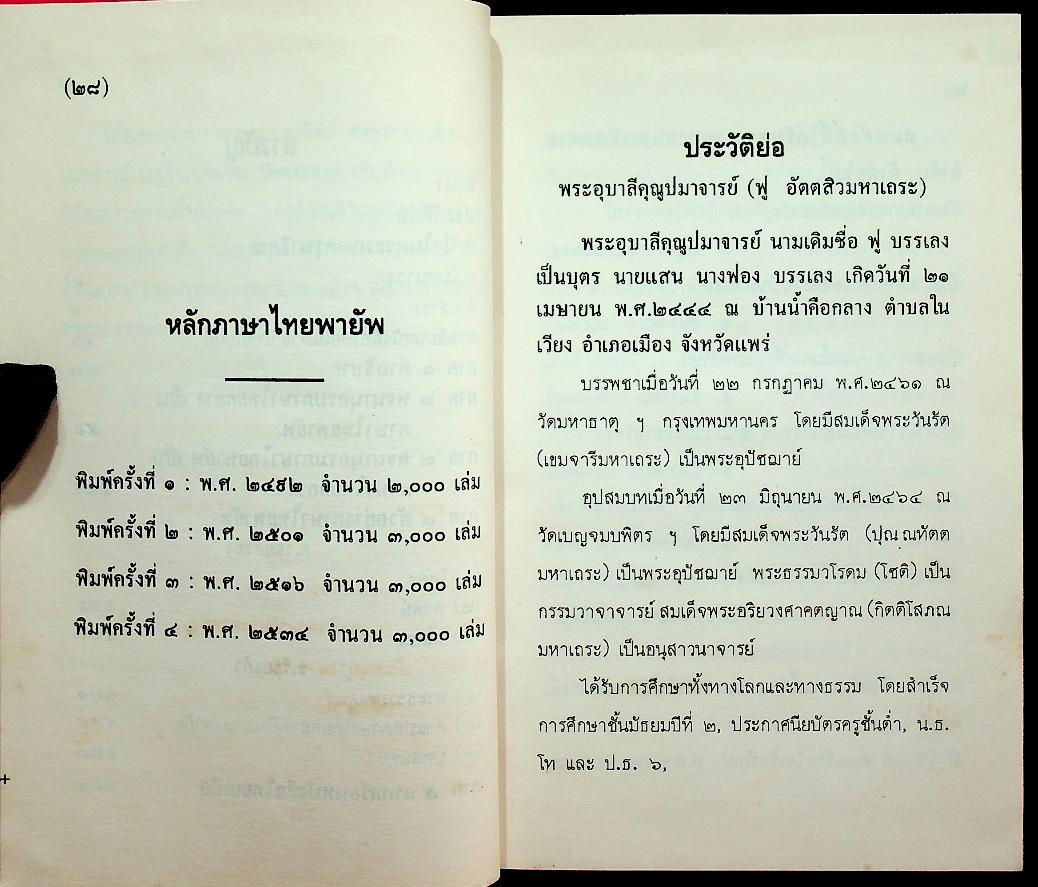 (๒๘)
หลักภาษาไทยพายัพ
พิมพ์ครั้งที่ ๑ : พ.ศ. ๒๔๙๒ จำนวน ๒,๐๐๐ เล่ม
พิมพ์ครั้งที่ ๒ : พ.ศ. ๒๕๐๑ จำนวน ๓,๐๐๐ เล่ม
พิมพ์ครั้งที่ ๓ : พ.ศ. ๒๕๑๖ จำนวน ๓,๐๐๐ เล่ม
พิมพ์ครั้งที่ ๔ : พ.ศ. ๒๕๓๔ จำนวน ๓,๐๐๐ เล่ม
ประวัติย่อ
พระอุบาลีคุณูปมาจารย์ (ฟู อัตตสิวมหาเถระ)
พระอุบาลีคุณูปมาจารย์ นามเดิมชื่อ ฟู บรรเลง
เป็นบุตร นายแสน นางฟอง บรรเลง เกิดวันที่ ๒๑
เมษายน พ.ศ.๒๔๔๔ ณ บ้านน้ำคือกลาง ตำบลใน
เวียง อำเภอเมือง จังหวัดแพร่
บรรพชาเมื่อวันที่ ๒๒ กรกฎาคม พ.ศ.๒๔๖๑ ณ
วัดมหาธาตุ ฯ กรุงเทพมหานคร โดยมีสมเด็จพระวันรัต
(เขมจารีมหาเถระ) เป็นพระอุปัชฌาย์
อุปสมบทเมื่อวันที่ ๒๓ มิถุนายน พ.ศ.๒๔๖๔ ณ
วัดเบญจมบพิตร ฯ โดยมีสมเด็จพระวันรัต (ปุณณทัตต
มหาเถระ) เป็นพระอุปัชฌาย์ พระธรรมวโรดม (โชติ) เป็น
กรรมวาจาจารย์ สมเด็จพระอริยวงศาคตญาณ (กิตติโสภณ
มหาเถระ) เป็นอนุสาวนาจารย์
ได้รับการศึกษาทั้งทางโลกและทางธรรม โดยสำเร็จ
การศึกษาชั้นมัธยมปีที่ ๒, ประกาศนียบัตรครูชั้นต่ำ, น.ธ.
โท และ ป.ธ. ๖,